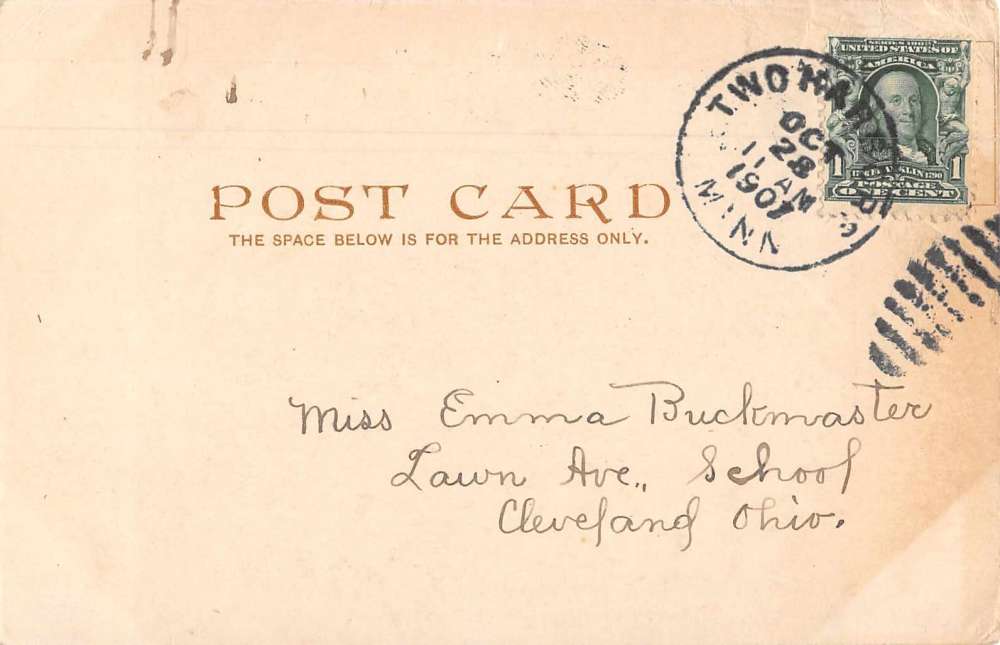 POST CARD
THE SPACE BELOW IS FOR THE ADDRESS ONLY.
TWO HARBORS
OCT
28
11 AM
1907
MINN
SERIES 1902
UNITED STATES OF
AMERICA
1 1
POSTAGE
ONE CENT
Miss Emma Buckmaster
Lawn Ave., School
Cleveland Ohio.